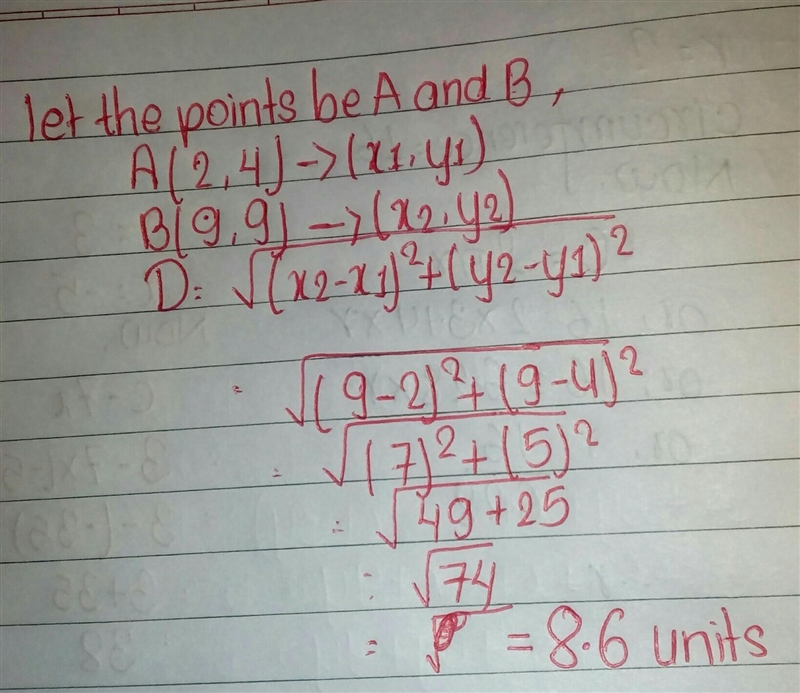 let the points be A and B,
A(2,4) → (x1,y1)
B(9,9) → (x2,y2)
D= √(x2-x1)²+(y2-y1)²
= √(9-2)²+(9-4)²
= √(7)²+(5)²
= √49+25
= √74
= √ = 8.6 units